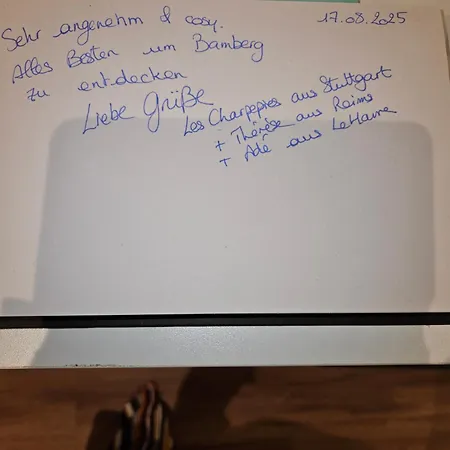 Sehr angenehm & cosy.
17.08.2025
Alles Besten um Bamberg
zu entdecken
Liebe Grüße
Les Charpepies aus Stuttgart
+ Thérèse aus Reims
+ Adé aus LeHavre